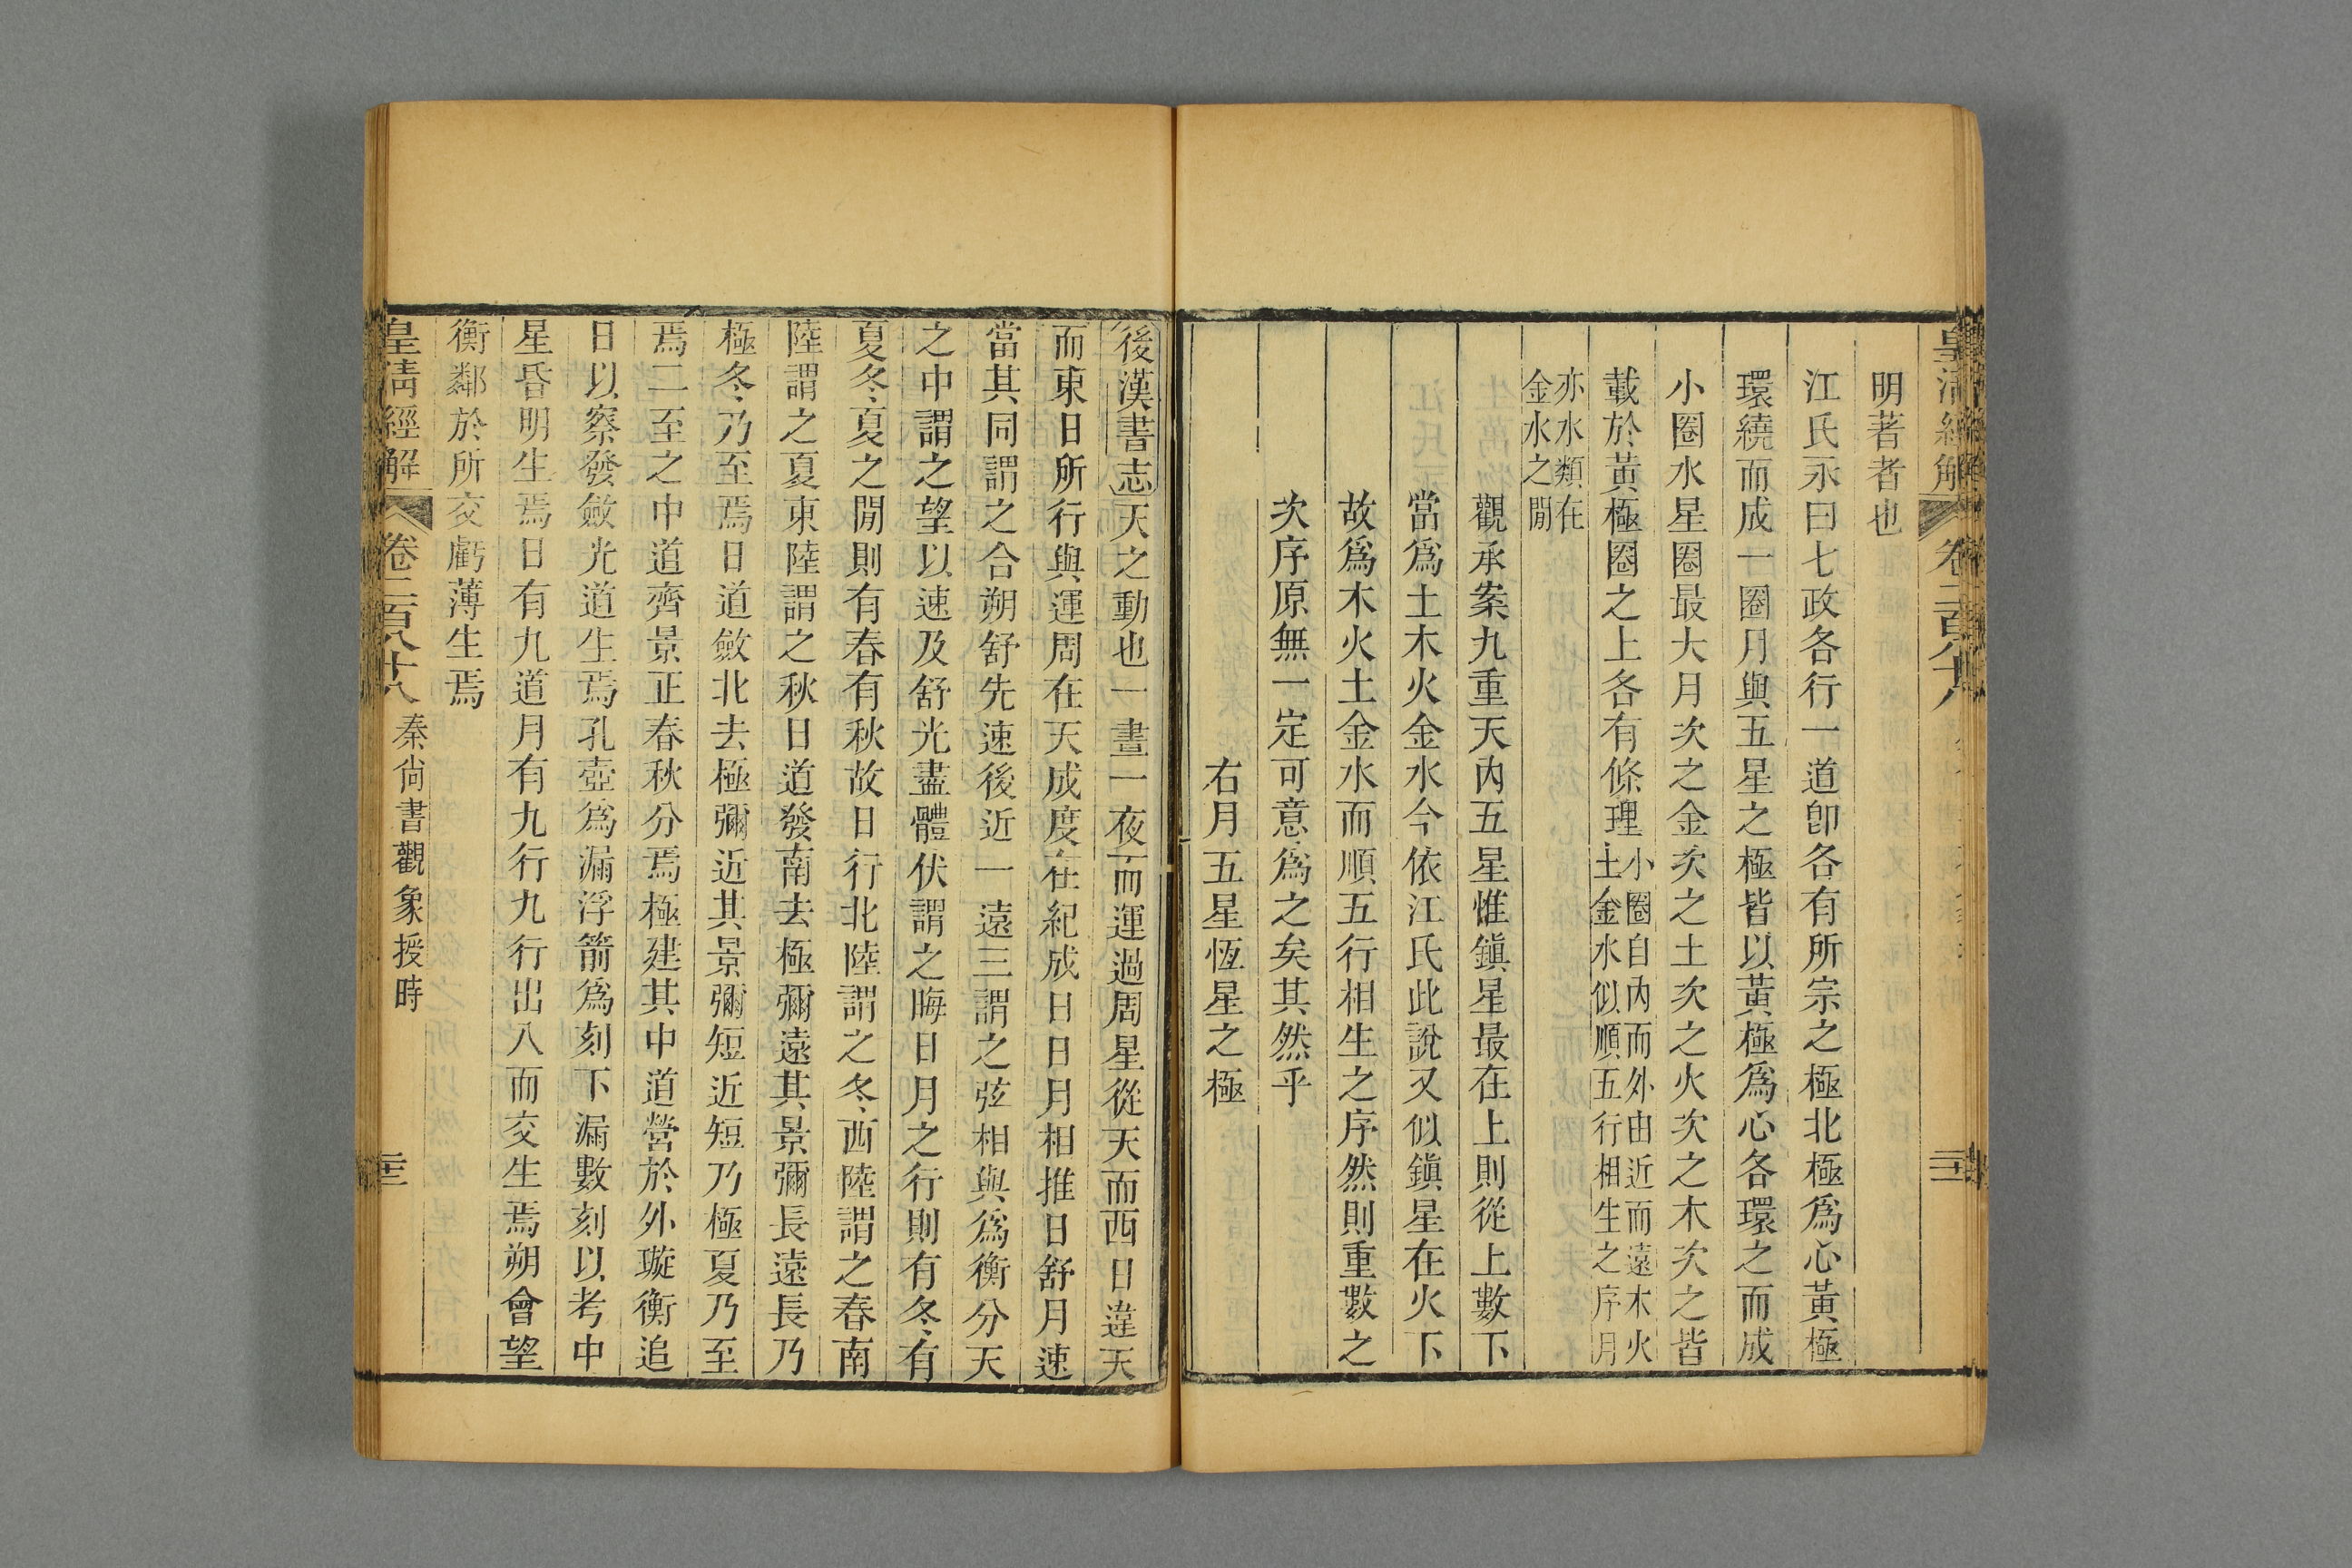 皇清經解
卷二百八十八
明著者也
江氏永曰七政各行一道卽各有所宗之極北極爲心黃極
環繞而成一圈月與五星之極皆以黃極爲心各環之而成
小圈水星圈最大月次之金次之土次之火次之木次之皆
載於黃極圈之上各有條理小圈自內而外由近而遠木火
土金水似順五行相生之序月
亦水類在
金水之閒
觀承案九重天內五星惟鎮星最在上則從上數下
當爲土木火金水今依江氏此說又似鎮星在火下
故爲木火土金水而順五行相生之序然則重數之
次序原無一定可意爲之矣其然乎
右月五星恆星之極
後漢書志天之動也一晝一夜而運過周星從天而西日違天
而東日所行與運周在天成度在紀成日日月相推日舒月速
當其同謂之合朔舒先速後近一遠三謂之弦相與爲衡分天
之中謂之望以速及舒光盡體伏謂之晦日月之行則有冬有
夏冬夏之閒則有春有秋故日行北陸謂之冬西陸謂之春南
陸謂之夏東陸謂之秋日道發南去極彌遠其景彌長遠長乃
極冬乃至焉日道斂北去極彌近其景彌短近短乃極夏乃至
焉二至之中道齊景正春秋分焉極建其中道營於外璇衡追
日以察發斂光道生焉孔壺爲漏浮箭爲刻下漏數刻以考中
星昏明生焉日有九道月有九行九行出入而交生焉朔會望
衡鄰於所交虧薄生焉
皇清經解
卷二百八十八
秦尙書觀象授時